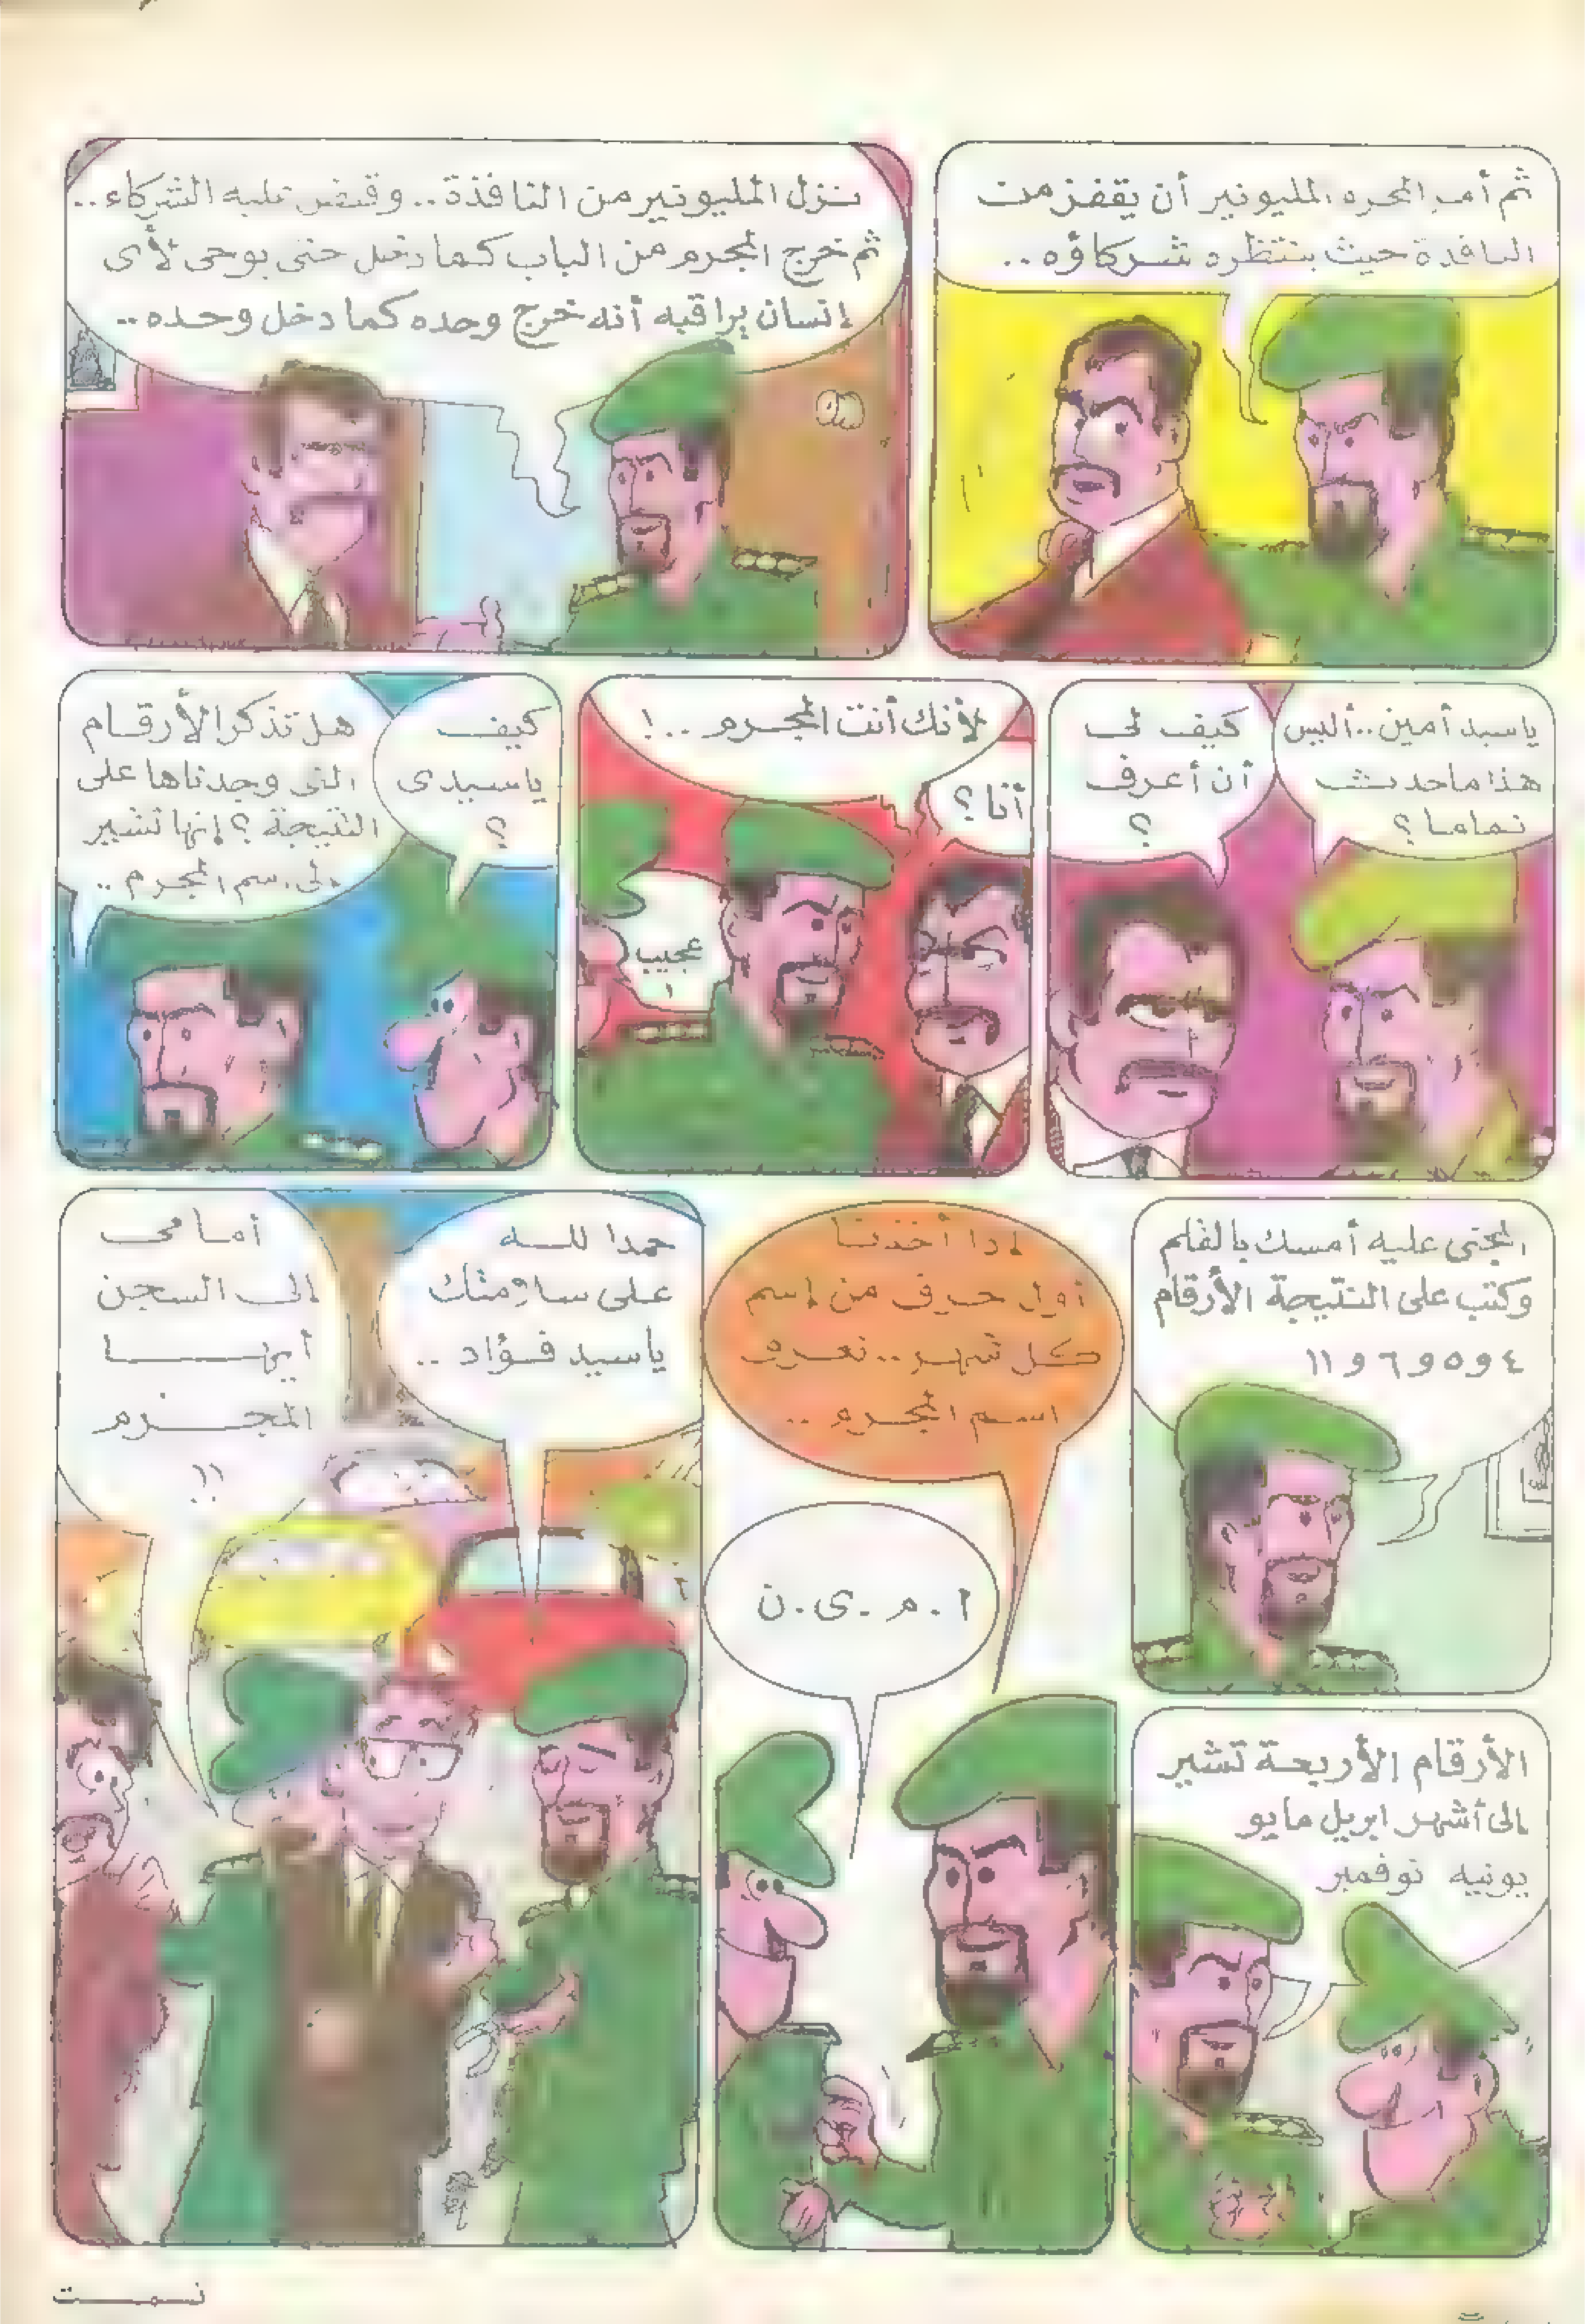 ثم أمر المجرم المليونير أن يقفز من
النافذة حيث ينتظره شركاؤه..
نزل المليونير من النافذة.. وقبض عليه الشركاء..
ثم خرج المجرم من الباب كما دخل حتى يوحى لأى
إنسان يراقبه أنه خرج وحده كما دخل وحده..
ياسيد أمين.. أليس
هذا ماحدث
تماما ؟
كيف لى
أن أعرف
؟
لأنك أنت المجرم ..!
أنا ؟
عجيب
!
كيف
ياسيدى
؟
هل تذكر الأرقام
التى وجدناها على
النتيجة ؟ إنها تشير
إلى اسم المجرم ..
المجنى عليه أمسك بالقلم
وكتب على النتيجة الأرقام
٤ و ٥ و ٦ و ١١
الأرقام الأربعة تشير
إلى أشهر ابريل مايو
يونيه نوفمبر
إذا أخذنا
أول حرف من إسم
كل شهر.. نعرف
اسم المجرم ..
ا . م . ى . ن
حمدا للـه
على سلامتك
ياسيد فؤاد ..
أمامى
إلى السجن
أيها
المجرم
!!
تمت